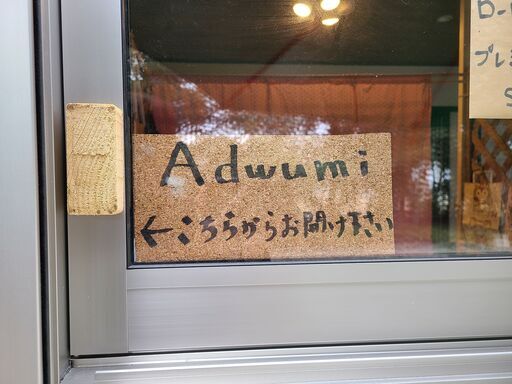 Adwumi
←こちらからお開け下さい
ロー
プレミ
S